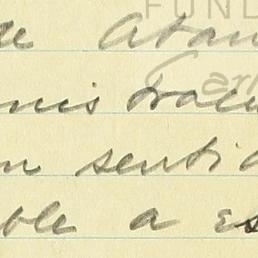 FUND
de Atan
Carl
nis trac
n sentid
ble a es